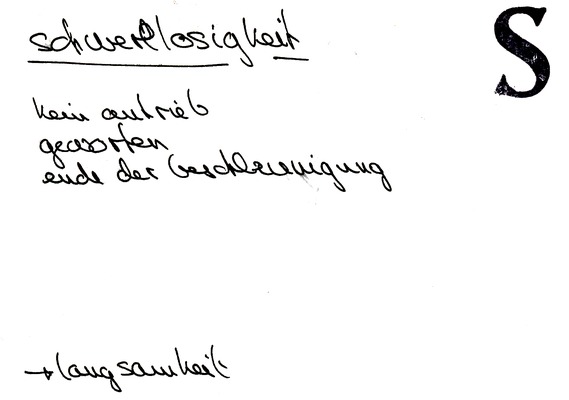 S
schwerelosigkeit
kein antrieb
geworfen
ende der beschleunigung
→ langsamkeit